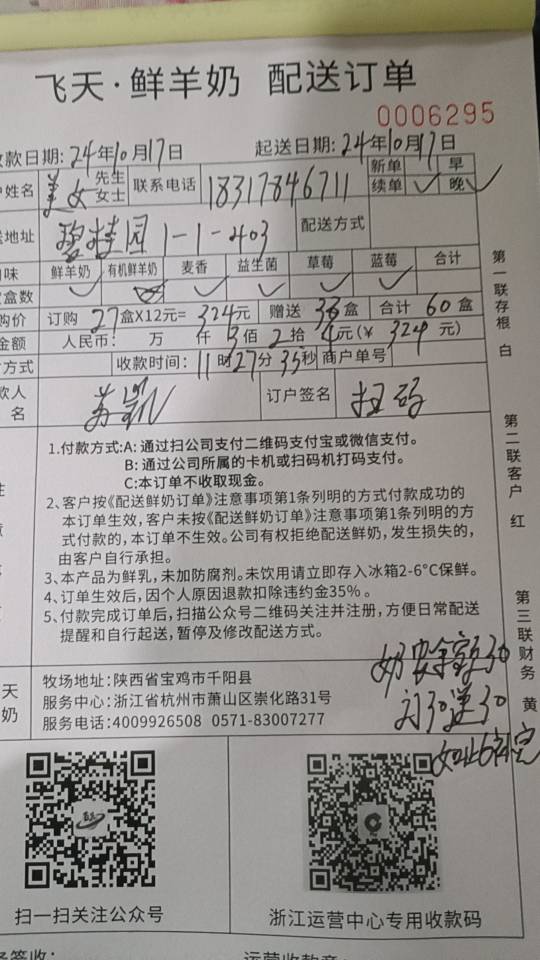 飞天·鲜羊奶 配送订单
0006295
收款日期: 24年10月17日 起送日期: 24年10月17日
户姓名 美女 先生 女士 联系电话 18317846711 新单 早
续单 ✓ 晚 ✓
送地址 碧桂园1-1-403 配送方式
口味 鲜羊奶 有机鲜羊奶 麦香 益生菌 草莓 蓝莓 合计
盒数 ✓ ✓ ✓ ✓ ✓
购价 订购 27盒X12元= 324元 赠送 33盒 合计 60盒
金额 人民币: 万 仟 3佰 2拾 4元(¥ 324 元)
方式 收款时间: 11时27分35秒 商户单号
款人
名 订户签名 扫码
1.付款方式:A: 通过扫公司支付二维码支付宝或微信支付。
B: 通过公司所属的卡机或扫码机打码支付。
C:本订单不收取现金。
2、客户按《配送鲜奶订单》注意事项第1条列明的方式付款成功的
本订单生效,客户未按《配送鲜奶订单》注意事项第1条列明的方
式付款的,本订单不生效。公司有权拒绝配送鲜奶,发生损失的,
由客户自行承担。
3、本产品为鲜乳,未加防腐剂。未饮用请立即存入冰箱2-6°C保鲜。
4、订单生效后,因个人原因退款扣除违约金35%。
5、付款完成订单后,扫描公众号二维码关注并注册,方便日常配送
提醒和自行起送,暂停及修改配送方式。
天
奶
牧场地址:陕西省宝鸡市千阳县
服务中心:浙江省杭州市萧山区崇化路31号
服务电话:4009926508 0571-83007277
订30送30
扫一扫关注公众号
浙江运营中心专用收款码
第一联存根 白
第二联客户 红
第三联财务 黄